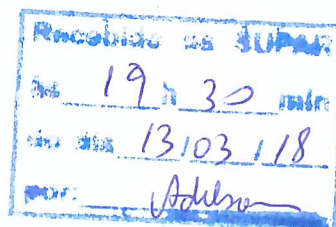 Recebido na SUPAR
às 19 h 30 min
do dia 13/03/18
por: Adilson